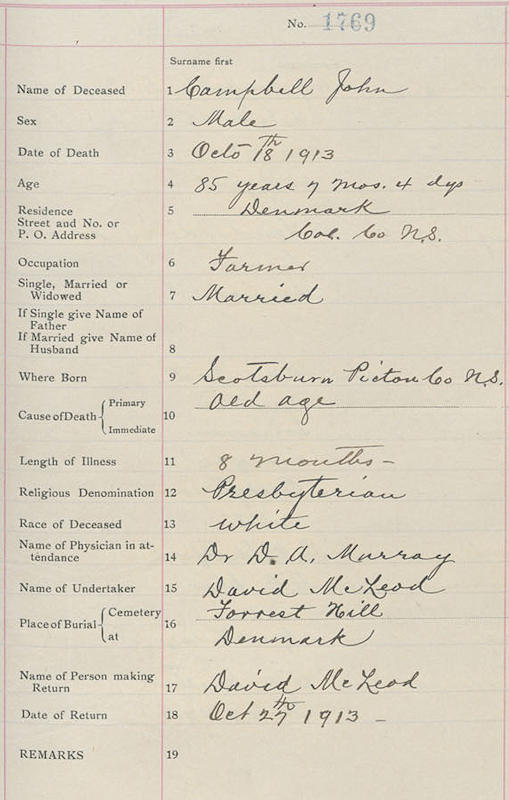 No. 1769
Surname first
Name of Deceased 1 Campbell John
Sex 2 Male
Date of Death 3 Octo 18th 1913
Age 4 85 years 7 mos. 4 dys
Residence
Street and No. or 5 Denmark
P. O. Address Col. Co N.S.
Occupation 6 Farmer
Single, Married or
Widowed 7 Married
If Single give Name of
Father
If Married give Name of
Husband 8
Where Born 9 Scotsburn Pictou Co N.S.
Cause of Death { Primary Immediate 10 Old age
Length of Illness 11 8 months –
Religious Denomination 12 Presbyterian
Race of Deceased 13 White
Name of Physician in at-
tendance 14 Dr D. A. Murray
Name of Undertaker 15 David McLeod
Place of Burial { Cemetery 16 Forrest Hill
at Denmark
Name of Person making
Return 17 David McLeod
Date of Return 18 Oct 27th 1913 –
REMARKS 19